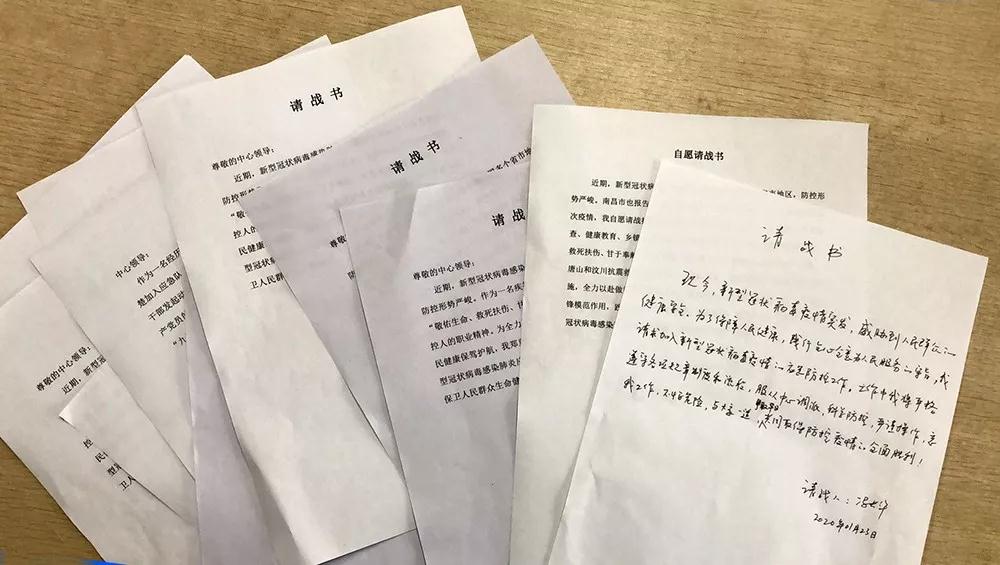 请战书
尊敬的中心领导：
近期，新型冠状病毒感染
防控形
“敬
控人
民健康
型冠状
卫人民群
请战书
尊敬
请战
尊敬的中心领导：
近期，新型冠状病毒感染
防控形势严峻，作为一名疾
“敬佑生命、救死扶伤、甘
控人的职业精神，为全力
民健康保驾护航，我郑重
型冠状病毒感染肺炎
保卫人民群众生命健
中心领导：
作为一名经历
楚加入应急队
干部发起
产党员
“九
尊敬
近期
控
民
型冠状
卫人
自愿请战书
近期，新型冠状病
市地区，防控形
势严峻，南昌市也报告
次疫情，我自愿请战
查、健康教育、乡镇
救死扶伤、甘于奉献
唐山和汶川抗震救
施，全力以赴做
锋模范作用，
冠状病毒感染
请战书
现今，新型冠状病毒疫情突发，威胁到人民群众的
健康安全。为了保障人民健康，履行全心全意为人民服务的宗旨，我
请求加入新型冠状病毒疫情的应急防控工作，工作中我将严格
遵守各项规章制度和流程，服从中心调派，科学防控，严谨操作，
工作，不怕危险，与大家一道，共同取得防控疫情的全面胜利！
请战人：
2020年01月23日